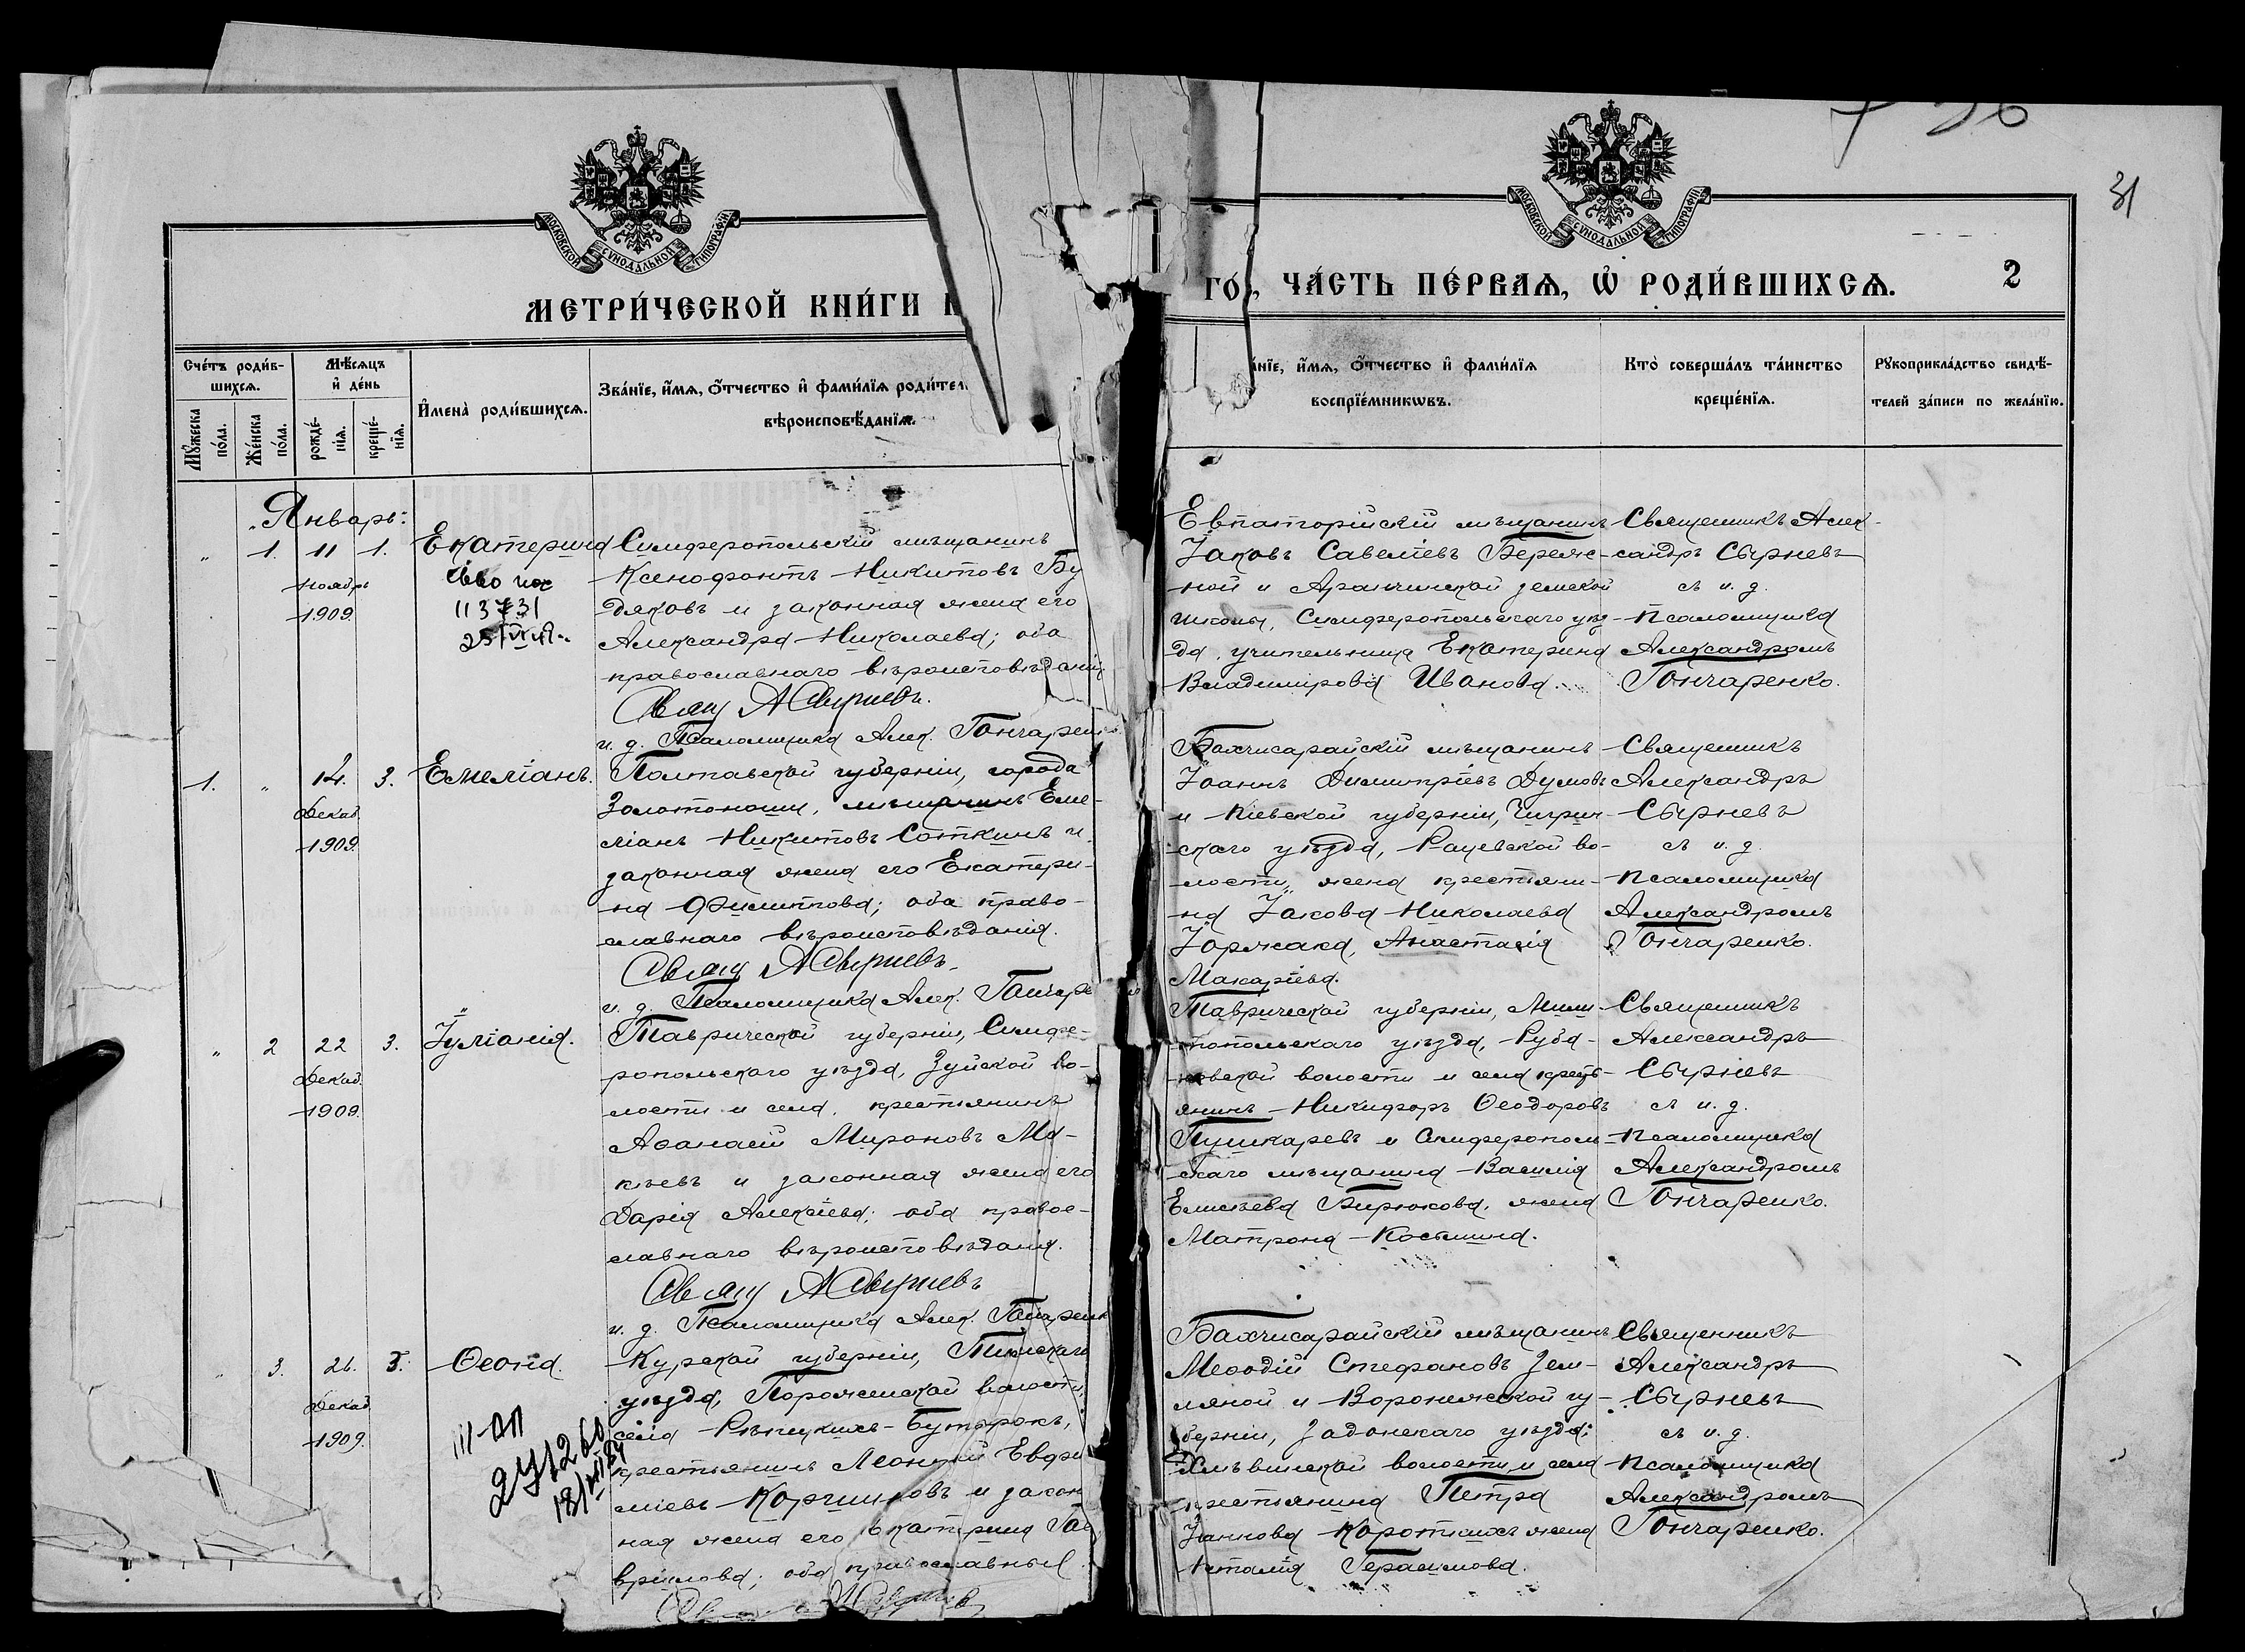 31
МОСКОВСКОЙ СѴНОДАЛЬНОЙ ТИПОГРАФІИ
МЕТРИ́ЧЕСКОЙ КНИ́ГИ
МОСКОВСКОЙ СѴНОДАЛЬНОЙ ТИПОГРАФІИ
ГО́, ЧА́СТЬ ПЕ́РВАѦ, Ѽ РОДИ́ВШИХСѦ.
2
Сче́тъ роди́в-
шихсѧ.
Мꙋ́жеска по́ла.
Же́нска по́ла.
Мѣ́сѧцъ
и҆ де́нь
рожде́-
нїѧ.
креще́-
нїѧ.
И҆мена̀ роди́вшихсѧ.
Зва́нїе, и҆́мѧ, ѻ҆́тчество и҆ фами́лїѧ роди́тел
вѣроисповѣ́данїѧ.
а́нїе, и҆́мѧ, ѻ҆́тчество и҆ фами́лїѧ
воспрїе́мникѡвъ.
Кто̀ соверша́лъ та́инство
креще́нїѧ.
Рꙋкоприкла́дство свидѣ́-
телей за́писи по жела́нїю.
Январь:
" 1. 11 1. Екатерина
Ноябрь
1909.
113731
Симферопольскій мѣщанинъ
Ксенофонтъ Никитовъ Бу
дяковъ и законная жена его
Александра Николаева; оба
православнаго вѣроисповѣданія
Свящ А Сырневъ.
и. д. Псаломщика Алек. Гончаренко
Евпаторійскій мѣщанинъ
Іаковъ Савеліевъ Береж-
ной и Аранчинской земской
школы, Симферопольскаго уѣз-
да, учительница Екатерина
Владимірова Иванова.
Священникъ Алек-
сандръ Сырневъ
съ и. д.
псаломщика
Александромъ
Гончаренко.
1. " 14. 3. Емеліанъ.
Декаб.
1909.
Полтавской губерніи, города
Золотоноши, мѣщанинъ Еме-
ліанъ Никитовъ Соткинъ и
законная жена его Екатери-
на Филиппова; оба право-
славнаго вѣроисповѣданія.
Свящ А Сырневъ.
и. д. Псаломщика Алек. Гончаре
Бахчисарайскій мѣщанинъ
Іоаннъ Димитріевъ Думовъ
и Кіевской губерніи, Чигрин-
скаго уѣзда, Рацевской во-
лости, жена крестьяни-
на Іакова Николаева
Горжака, Анастасія
Макаріева.
Священникъ
Александръ
Сырневъ
съ и. д.
псаломщика
Александромъ
Гончаренко.
" 2 22 3. Іуліанія.
Декаб.
1909.
Таврической губерніи, Симфе-
ропольскаго уѣзда, Зуйской во-
лости и села, крестьянинъ
Аѳанасій Мироновъ Ма-
кѣевъ и законная жена его
Дарія Алексіева; оба право-
славнаго вѣроисповѣданія.
Свящ А Сырневъ
и. д. Псаломщика Алек. Гончаренк
Таврической губерніи, Мели-
топольскаго уѣзда, Руба-
новской волости и села кресть-
янинъ Никифоръ Ѳеодоровъ
Пушкаревъ и Симферополь-
скаго мѣщанина Василія
Елисѣева Бирюкова, жена
Матрона Косьмина.
Священникъ
Александръ
Сырневъ
съ и. д.
псаломщика
Александромъ
Гончаренко.
3. 26. Ѳеона.
Декаб
1909.
Курской губерніи, Тимскаго
уѣзда, волости,
села Бутырокъ,
крестьянинъ Леонтій Евфи
міевъ и закон
ная жена его Екатерина Га
вріилова; оба православные.
Бахчисарайскій мѣщанинъ
Меѳодій Стефановъ Зем-
ляной и Воронежской гу-
берніи, Задонскаго уѣзда,
Хлѣвинской волости и села
крестьянина Петра
Іаннова Короткихъ жена
Наталія Герасимова.
Священникъ
Александръ
Сырневъ
съ и. д.
псаломщика
Александромъ
Гончаренко.